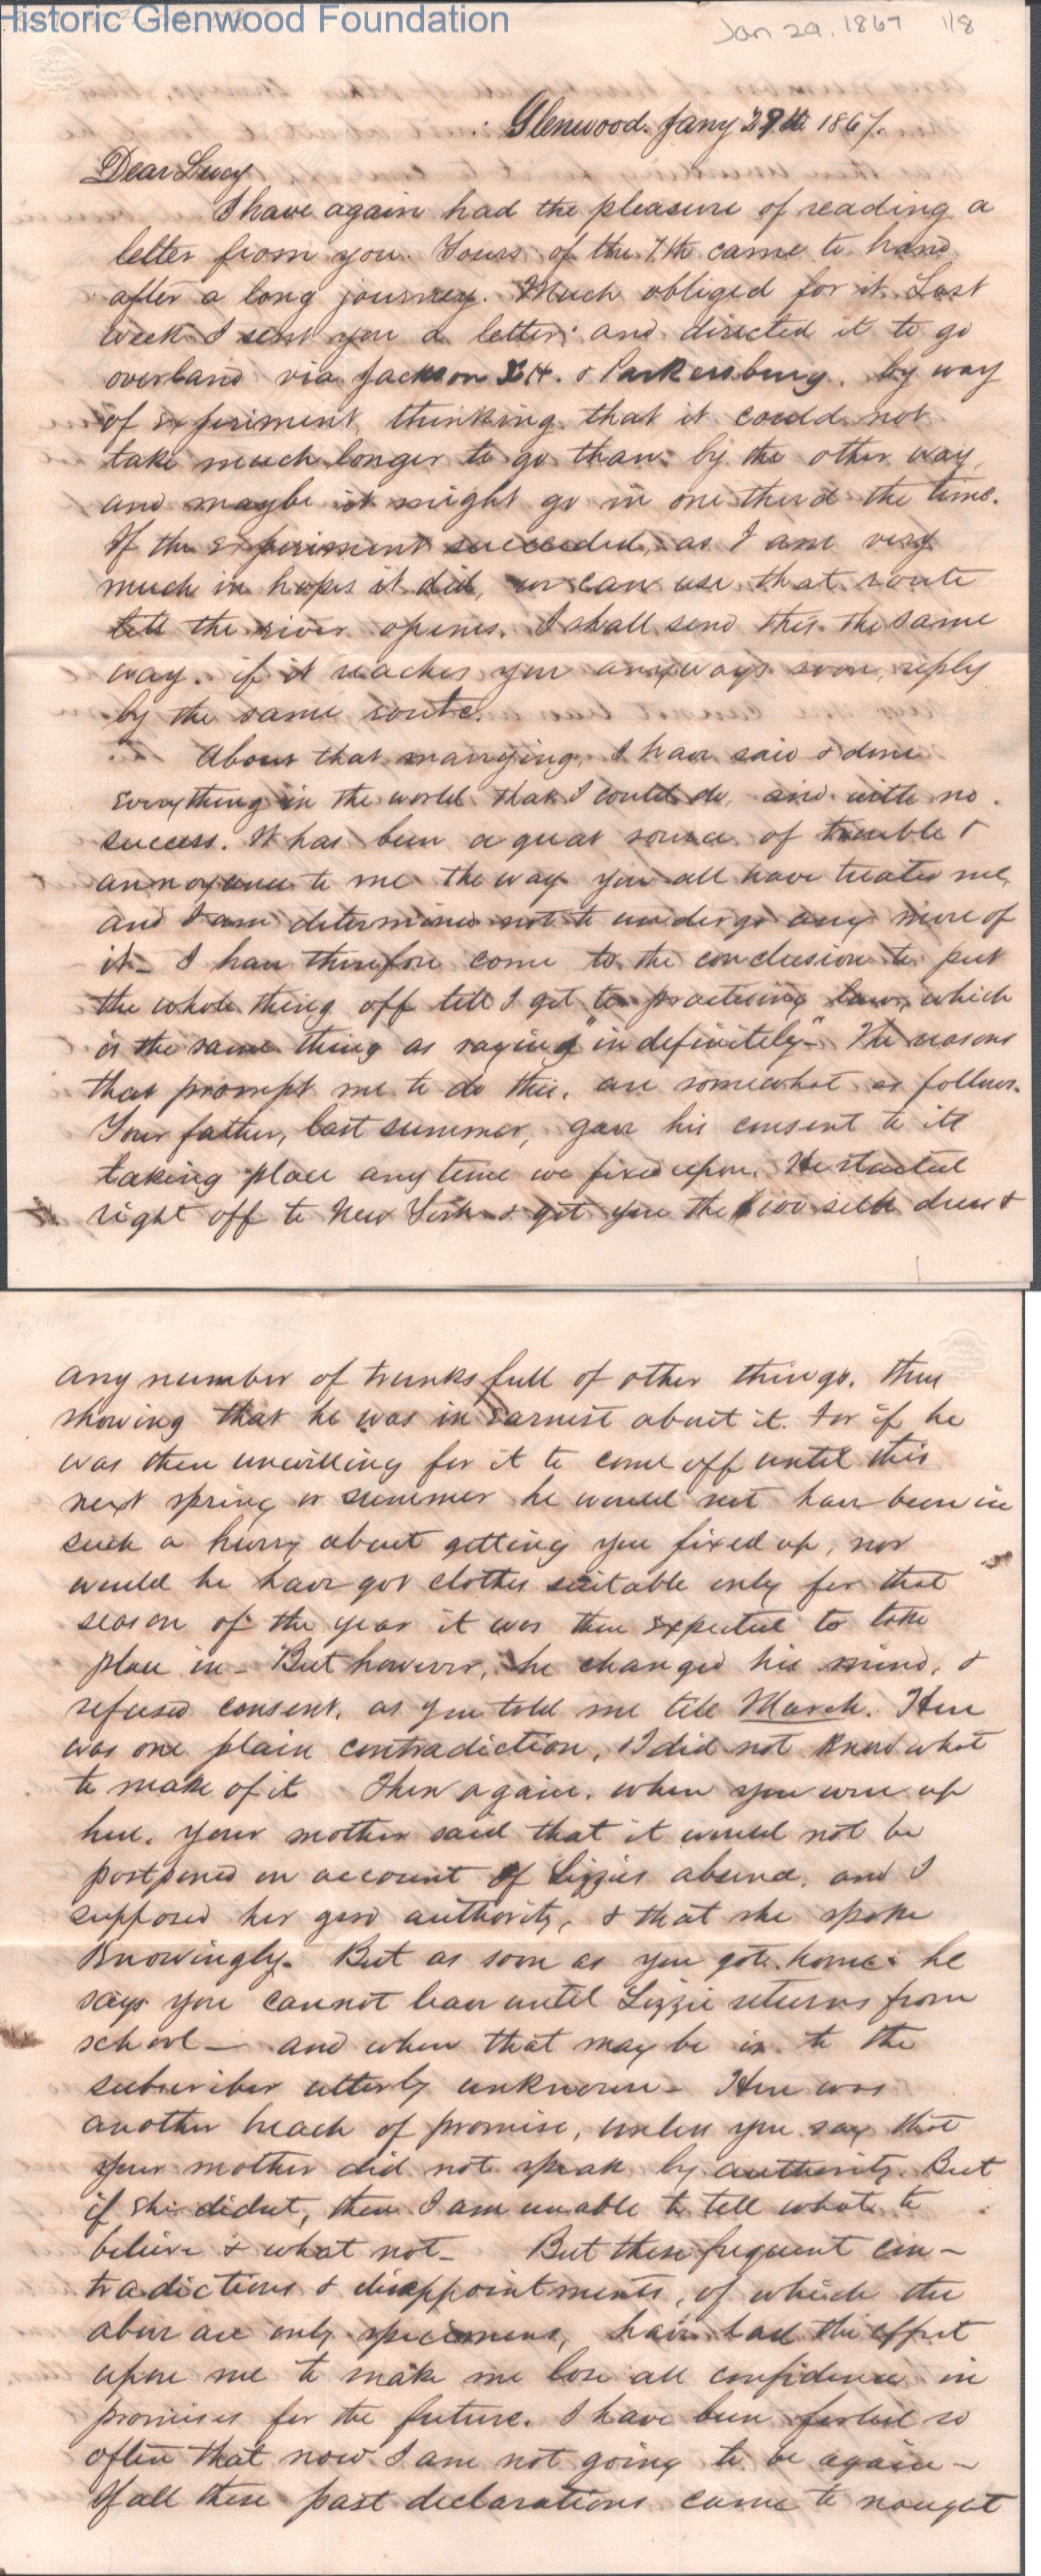 Historic Glenwood Foundation
Jan 29, 1867 118
Glenwood. Jany 29th 1867.
Dear Lucy
I have again had the pleasure of reading a
letter from you. Yours of the 7th came to hand
after a long journey. Much obliged for it. Last
week I sent you a letter, and directed it to go
overland via Jackson C.H. & Parkersburg, by way
of experiment, thinking that it could not
take much longer to go than by the other way,
and maybe it might go in one third the time.
If the experiment succeeded, as I am very
much in hopes it did, we can use that route
till the river opens. I shall send this the same
way. if it reaches you anyways soon, reply
by the same route.
About that marrying, I have said & done
everything in the world that I could do, and with no
success. It has been a great source of trouble &
annoyance to me the way you all have treated me,
and I am determined not to undergo any more of
it - I have therefore come to the conclusion to put
the whole thing off till I get to practicing law, which
is the same thing as saying "indefinitely" - The reasons
that prompt me to do this, are somewhat as follows.
Your father, last summer, gave his consent to its
taking place any time we fixed upon. He started
right off to New York & got you the $100 silk dress &
any number of trunks full of other things, thus
showing that he was in earnest about it. For if he
was then unwilling for it to come off until this
next spring or summer he would not have been in
such a hurry about getting you fixed up, nor
would he have got clothes suitable only for that
season of the year it was then expected to take
place in - But however, he changed his mind, &
refused consent, as you told me till March. Here
was one plain contradiction, I did not know what
to make of it Then again, when you were up
here, your mother said that it would not be
postponed on account of Lizzies absence, and I
supposed her good authority, & that she spoke
knowingly. But as soon as you got home he
says you cannot leave until Lizzie returns from
school - and when that may be is to the
subscriber utterly unknown - Here was
another breach of promise, unless you say that
your mother did not speak by authority. But
if she didnt, then I am unable to tell what to
believe & what not - But these frequent con-
tradictions & disappointments, of which the
above are only specimens, have had the effect
upon me to make me lose all confidence in
promises for the future. I have been so
often that now I am not going to be again -
If all these past declarations came to nought